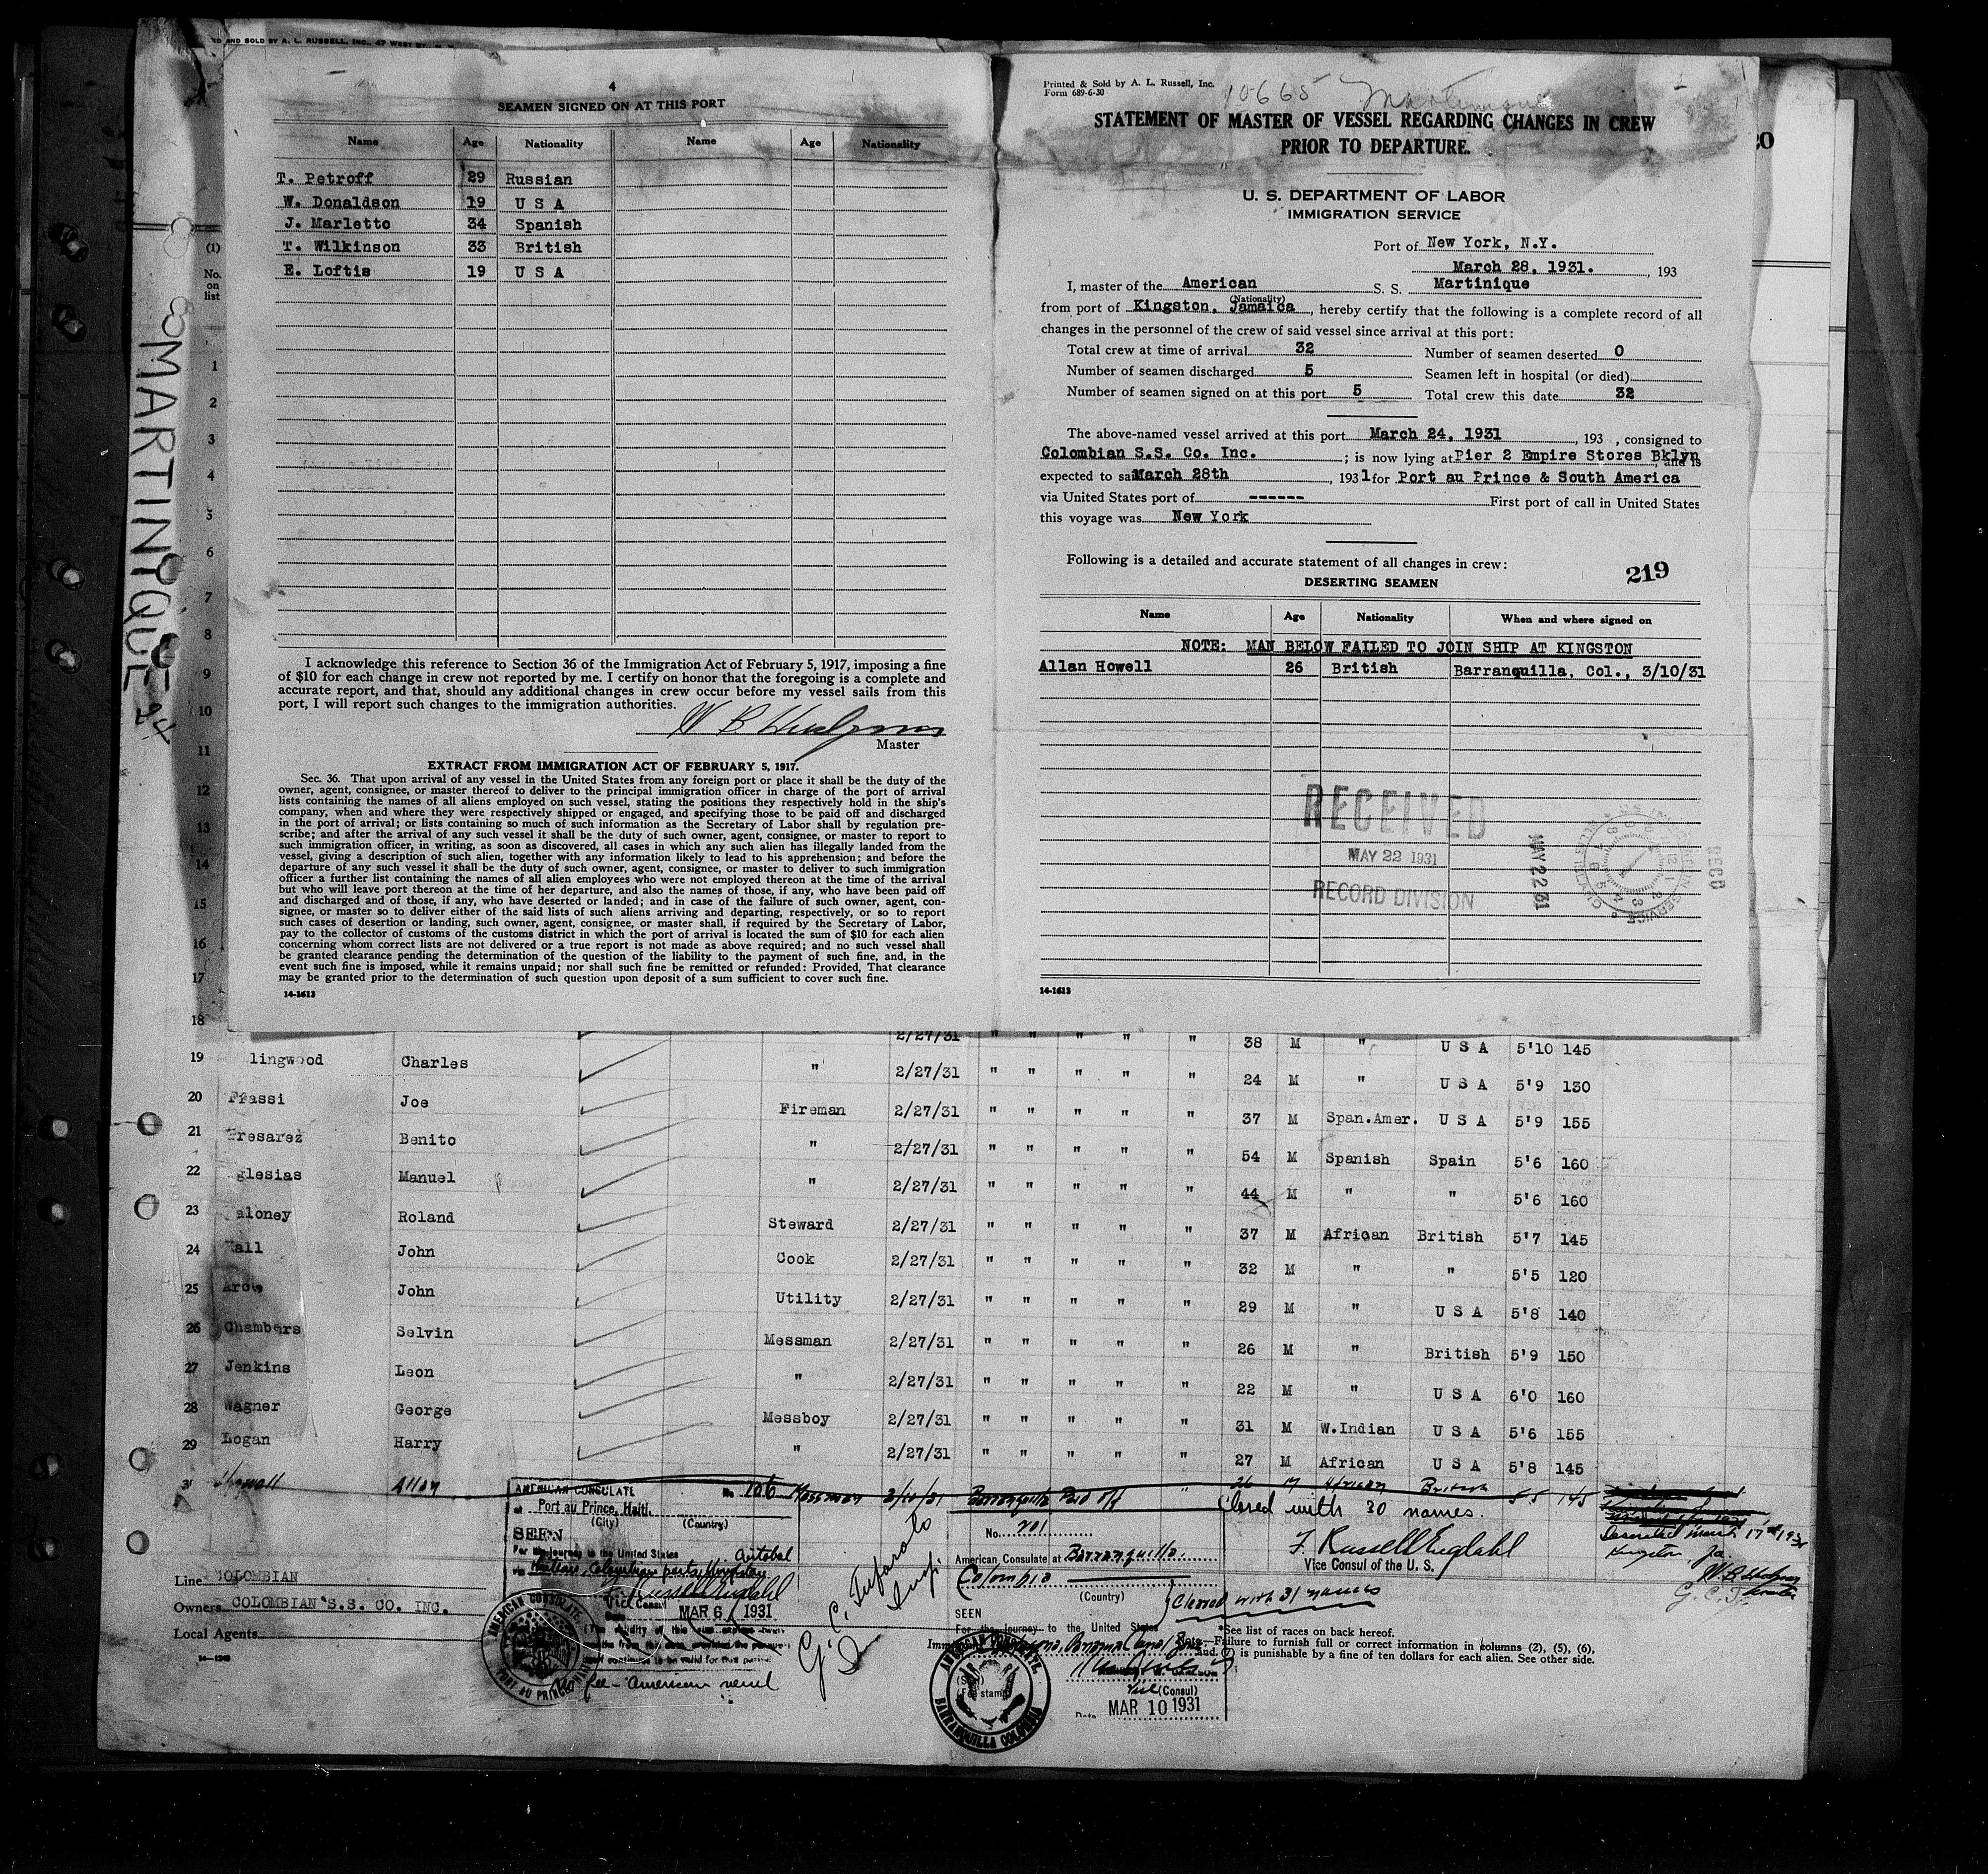 ED AND SOLD BY A. L. RUSSELL, INC., 47 WEST ST., N. Y.
4
SEAMEN SIGNED ON AT THIS PORT
Name Age Nationality Name Age Nationality
T. Petroff 29 Russian
W. Donaldson 19 U S A
J. Marletto 34 Spanish
T. Wilkinson 33 British
E. Loftis 19 U S A
I acknowledge this reference to Section 36 of the Immigration Act of February 5, 1917, imposing a fine
of $10 for each change in crew not reported by me. I certify on honor that the foregoing is a complete and
accurate report, and that, should any additional changes in crew occur before my vessel sails from this
port, I will report such changes to the immigration authorities.
Master
EXTRACT FROM IMMIGRATION ACT OF FEBRUARY 5, 1917.
Sec. 36. That upon arrival of any vessel in the United States from any foreign port or place it shall be the duty of the
owner, agent, consignee, or master thereof to deliver to the principal immigration officer in charge of the port of arrival
lists containing the names of all aliens employed on such vessel, stating the positions they respectively hold in the ship's
company, when and where they were respectively shipped or engaged, and specifying those to be paid off and discharged
in the port of arrival; or lists containing so much of such information as the Secretary of Labor shall by regulation pre-
scribe; and after the arrival of any such vessel it shall be the duty of such owner, agent, consignee, or master to report to
such immigration officer, in writing, as soon as discovered, all cases in which any such alien has illegally landed from the
vessel, giving a description of such alien, together with any information likely to lead to his apprehension; and before the
departure of any such vessel it shall be the duty of such owner, agent, consignee, or master to deliver to such immigration
officer a further list containing the names of all alien employees who were not employed thereon at the time of the arrival
but who will leave port thereon at the time of her departure, and also the names of those, if any, who have been paid off
and discharged and of those, if any, who have deserted or landed; and in case of the failure of such owner, agent, con-
signee, or master so to deliver either of the said lists of such aliens arriving and departing, respectively, or so to report
such cases of desertion or landing, such owner, agent, consignee, or master shall, if required by the Secretary of Labor,
pay to the collector of customs of the customs district in which the port of arrival is located the sum of $10 for each alien
concerning whom correct lists are not delivered or a true report is not made as above required; and no such vessel shall
be granted clearance pending the determination of the question of the liability to the payment of such fine, and, in the
event such fine is imposed, while it remains unpaid; nor shall such fine be remitted or refunded: Provided, That clearance
may be granted prior to the determination of such question upon deposit of a sum sufficient to cover such fine.
14-1613
Printed & Sold by A. L. Russell, Inc.
Form 689-6-30
10665 Martinique
STATEMENT OF MASTER OF VESSEL REGARDING CHANGES IN CREW
PRIOR TO DEPARTURE.
U. S. DEPARTMENT OF LABOR
IMMIGRATION SERVICE
Port of New York, N.Y.
March 28, 1931. , 193
I, master of the American S. S. Martinique
(Nationality)
from port of Kingston, Jamaica, hereby certify that the following is a complete record of all
changes in the personnel of the crew of said vessel since arrival at this port:
Total crew at time of arrival 32 Number of seamen deserted 0
Number of seamen discharged 5 Seamen left in hospital (or died)
Number of seamen signed on at this port 5 Total crew this date 32
The above-named vessel arrived at this port March 24, 1931 , 193 , consigned to
Colombian S.S. Co. Inc. ; is now lying at Pier 2 Empire Stores Bklyn, and is
expected to sail March 28th , 1931 for Port au Prince & South America
via United States port of ------ First port of call in United States
this voyage was New York
Following is a detailed and accurate statement of all changes in crew:
219
DESERTING SEAMEN
Name Age Nationality When and where signed on
NOTE: MAN BELOW FAILED TO JOIN SHIP AT KINGSTON
Allan Howell 26 British Barranquilla, Col., 3/10/31
RECEIVED
MAY 22 1931
RECORD DIVISION
MAY 22 31
RECD
14-1613
20
MARTINIQUE
24
(1)
No.
on
list
1
2
3
4
5
6
7
8
9
10
11
12
13
14
15
16
17
18 2/27/31 " " " " " 38 M " U S A 5'10 145
19 lingwood Charles " 2/27/31 " " " " " 24 M " U S A 5'9 130
20 Frassi Joe Fireman 2/27/31 " " " " " 37 M Span.Amer. U S A 5'9 155
21 Presarez Benito " 2/27/31 " " " " " 54 M Spanish Spain 5'6 160
22 glesias Manuel " 2/27/31 " " " " " 44 M " " 5'6 160
23 aloney Roland Steward 2/27/31 " " " " " 37 M African British 5'7 145
24 all John Cook 2/27/31 " " " " " 32 M " " 5'5 120
25 John Utility 2/27/31 " " " " " 29 M " U S A 5'8 140
26 Chambers Selvin Messman 2/27/31 " " " " " 26 M " British 5'9 150
27 Jenkins Leon " 2/27/31 " " " " " 22 M " U S A 6'0 160
28 Wagner George Messboy 2/27/31 " " " " " 31 M W.Indian U S A 5'6 155
29 Logan Harry " 2/27/31 " " " " " 27 M African U S A 5'8 145
Howell Allan Messman 3/10/31 Barranquilla Paid off " 26 M African British 5'5 145
Closed with 30 names.
Deserted March 17th 1931
Kingston, Ja.
F. Russell Engdahl
Vice Consul of the U. S.
AMERICAN CONSULATE No. 106
at Port au Prince, Haiti.
(City) (Country)
SEEN
For the journey to the United States
MAR 6 1931
fee - American vessel
AMERICAN CONSULATE
PORT AU PRINCE
No. 201
American Consulate at Barranquilla
Colombia
(Country)
SEEN
For the Journey to the United States
Closed with 31 names
(Consul)
Date MAR 10 1931
AMERICAN CONSULATE
BARRANQUILLA COLOMBIA
Line COLOMBIAN
Owners COLOMBIAN S.S. CO. INC.
Local Agents
14-1240
*See list of races on back hereof.
Note.—Failure to furnish full or correct information in columns (2), (5), (6),
and is punishable by a fine of ten dollars for each alien. See other side.